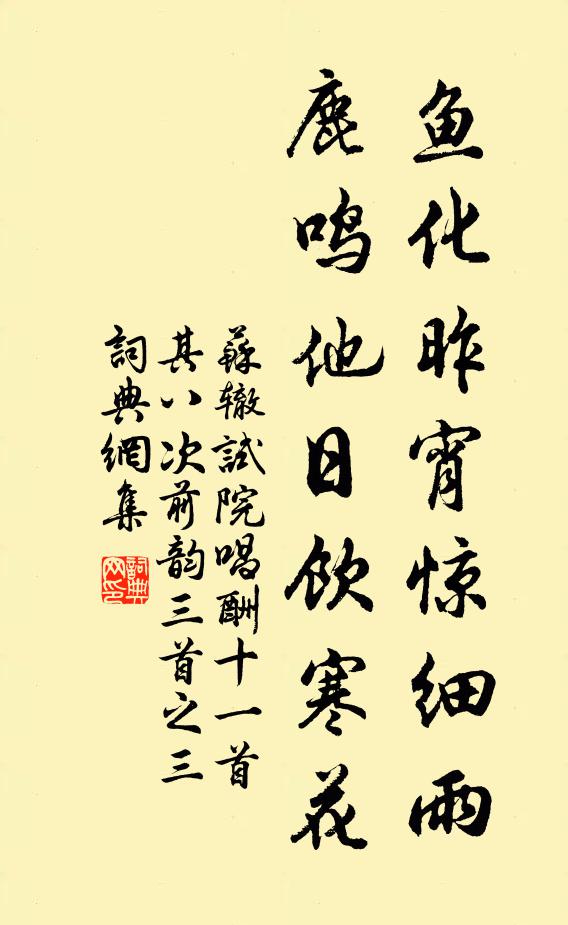 鱼化昨宵惊细雨
鹿鸣他日饮寒花
蘇辙試院唱酬十一首
其八次前韵三首之三
詞典網集
詞典网印